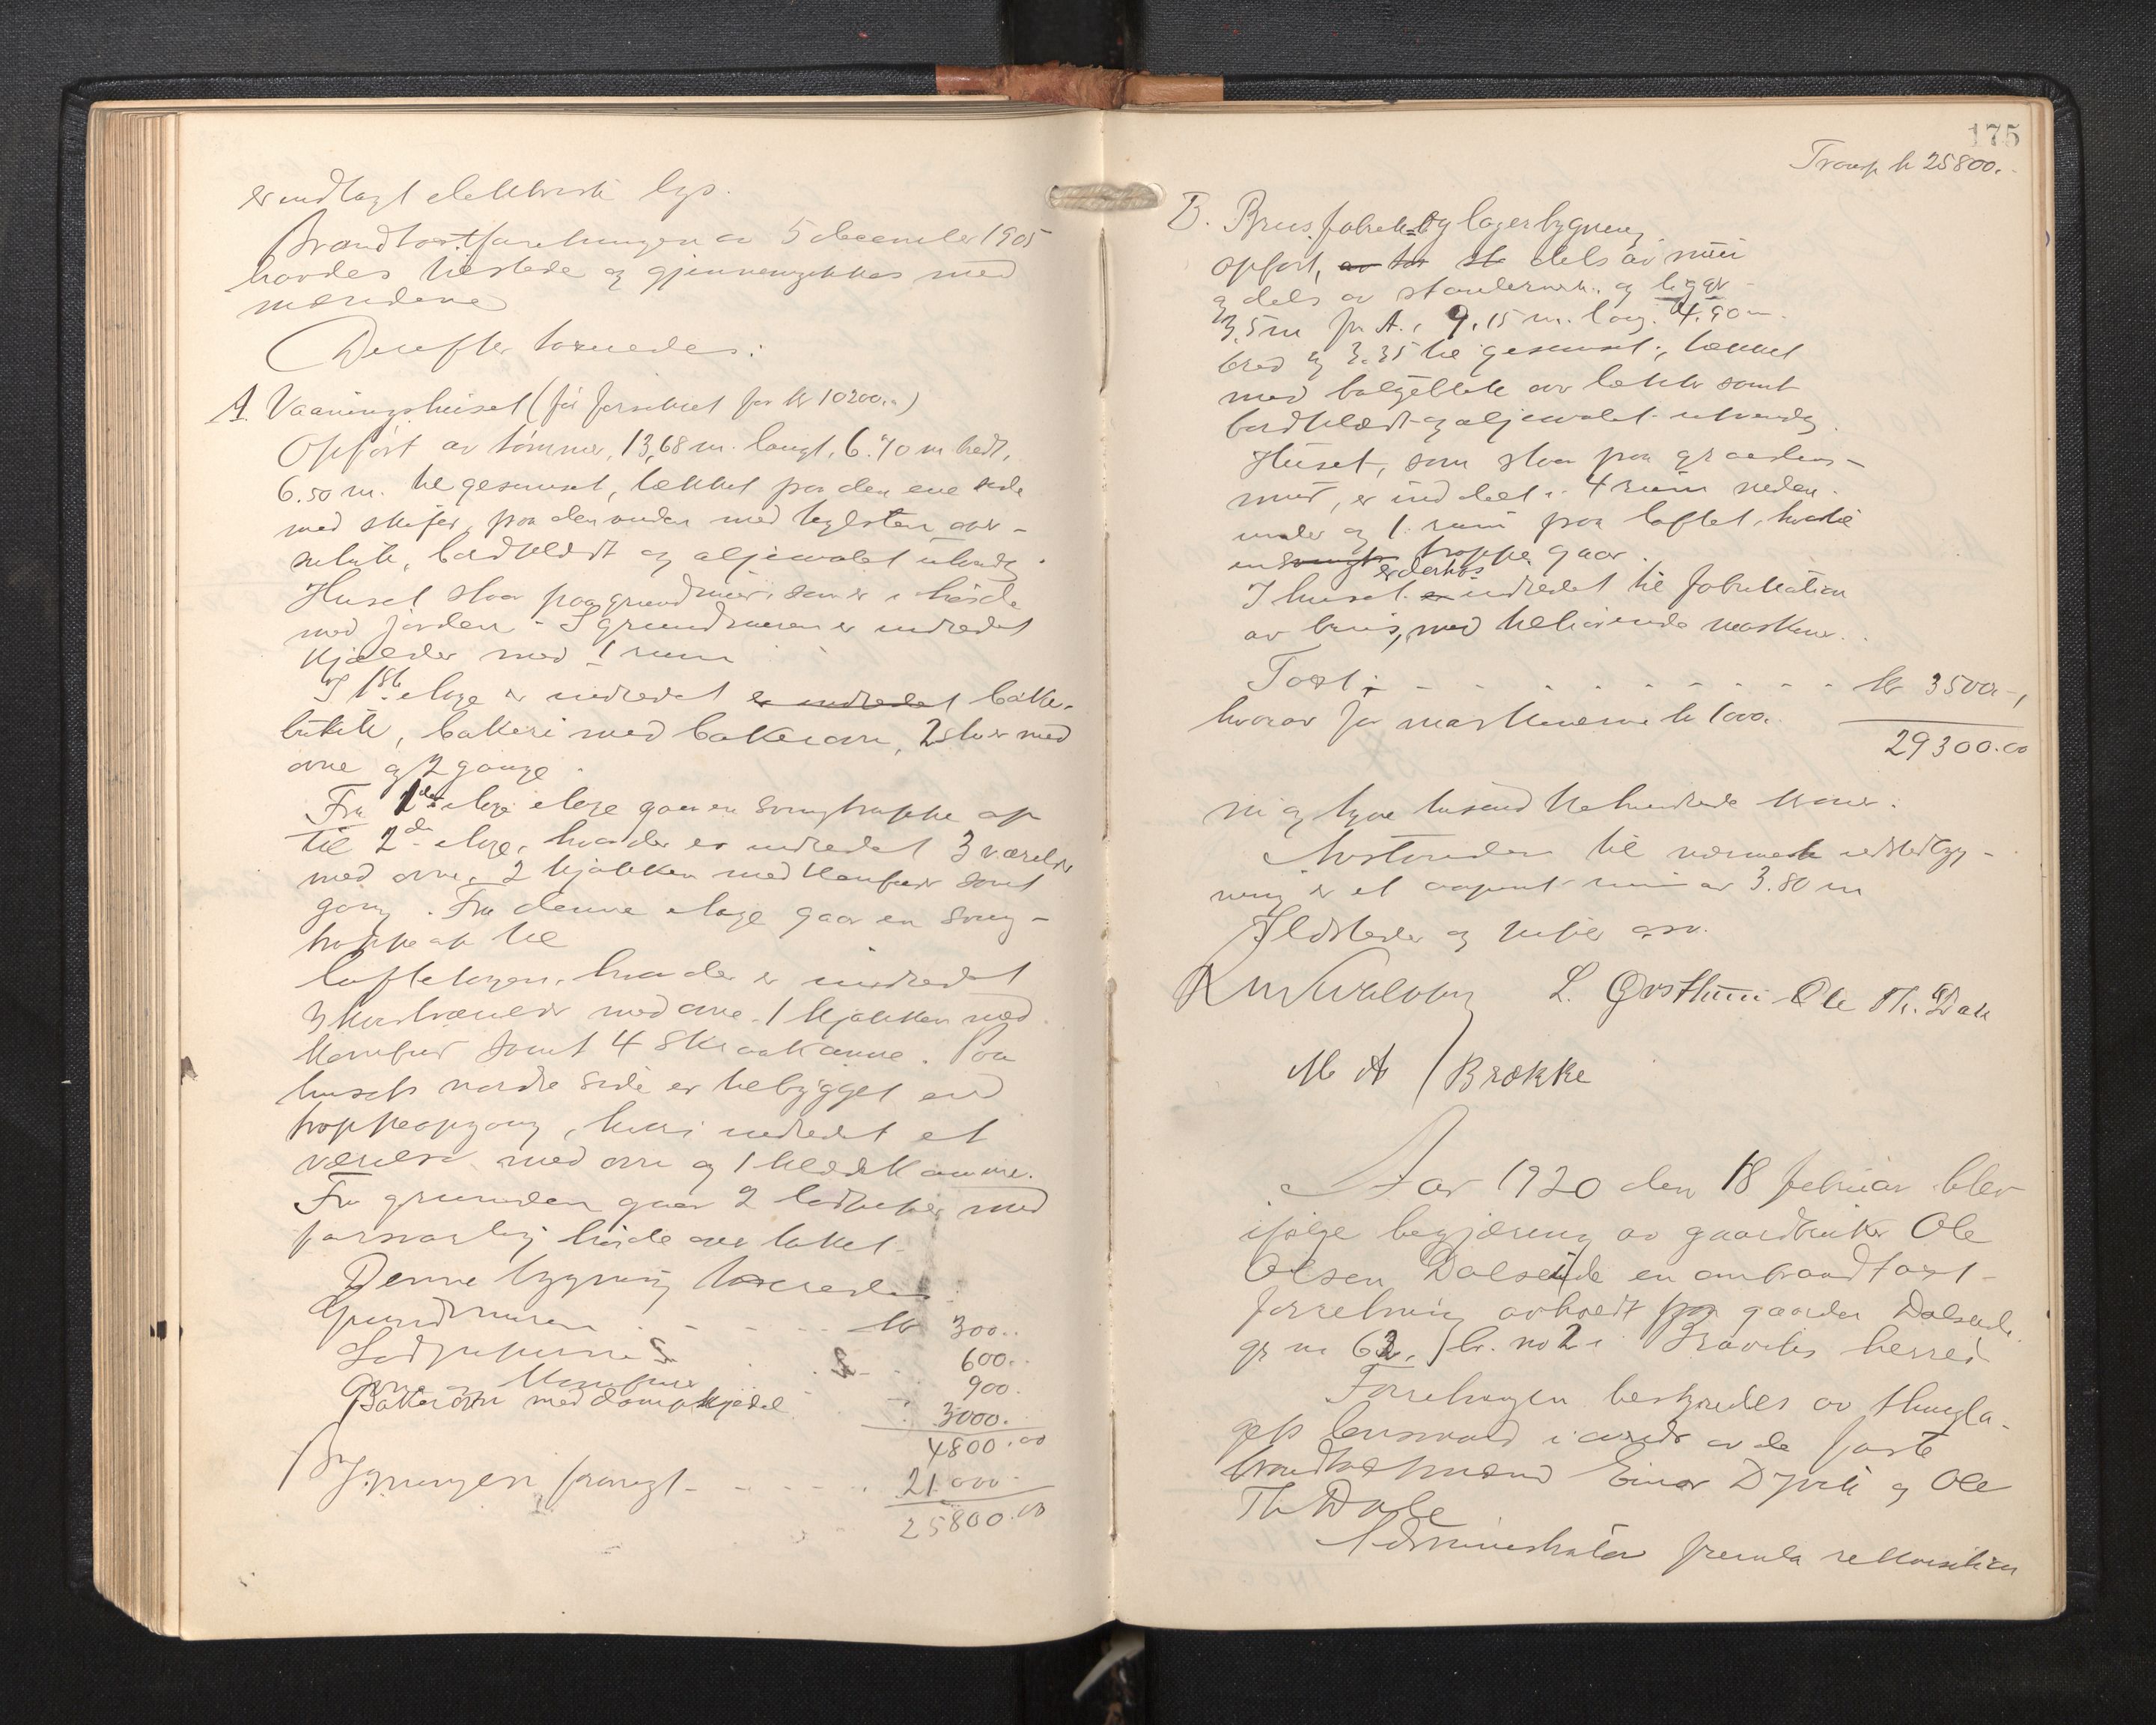 er indlagt elektrisk lys.
Brandtaxtforretningen av 5 december 1905
havdes tilstede og gjennemgikkes med
mændene
Derefter taxeredes:
A. Vaaningshuset (før forsikret for kr 10200.-)
Opført av tømmer, 13,68 m. langt, 6.70 m bredt,
6.50 m. til gesimset, tækket paa den ene side
med skifer, paa den anden med teglsten over
bordklædt og oljemalet utvendig.
Huset staar paa grundmur, som er i høide
med jorden. I grundmuren er indredet
kjælder med 1 rum
I 1ste etage er indredet er indredet bake-
butik, bakeri med bakerovn, 2 stuer med
ovne og 2 gange.
Fra 1ste etage etage gaar en svingtrappe op
til 2den etage, hvor der er indredet 3 værelser
med ovne, 2 kjøkken med komfur samt
gang. Fra denne etage gaar en sving-
trappe op til
loftetagen, hvor der er indredet
3 værelser med ovne 1 kjøkken med
komfur samt 4 skraakamre. Paa
husets nordre side er tilbygget en
trappeopgang, hvori indredet et
værelse med ovn og 1 klædekammer.
Fra grunden gaar 2 lodpiper med
forsvarlig høide over taket.
Denne bygning taxeredes:
Grundmuren kr 300..
Lodpiperne 600..
Ovne og Komfur 900.
Bakerovn med dampkjedel 3000.
4800.00
Bygningen forøvrigt 21000
25800.00
175
Transp kr 25800.
B. Brusfabrik- og lagerbygning
opført, dels av mur
og dels av staververk og ligger
3.5 m fra A., 9.15 m. lang. 4.90 m.
bred og 3.35 til gesimset, tækket
med bølgeblik over lekter samt
bordklædt og oljemalet utvendig.
Huset, som staar paa graastens-
mur, er inddelt i 4 rum neden-
under og 1 rum paa loftet, hvortil
en svingt trappe gaar.
I huset er derhos indredet til fabrikation
av brus, med tilhørende maskiner.
Taxt: kr 3500-,
hvorav for maskinerne kr 1000.
29300.00
ni og tyve tusind trehundrede kroner.
Avstanden til nærmeste ildstedbyg-
ning er et aapent rum av 3.80 m
Ildsteder og piper osv.
L. Østhun Ole Th. Dale
M A Brække
Aar 1920 den 18 februar blev
ifølge begjæring av gaardbruker Ole
Olsen Dalseide en ombrandtaxt-
forretning avholdt paa gaarden Dalseide
gr no 62, br. no 2 i Bruviks herred
Forretningen bestyredes av thingla-
gets lensmand i overvær av de faste
brandtakstmænd Einar Dyvik og Ole
Th Dale
Administrator fremla rekvisition